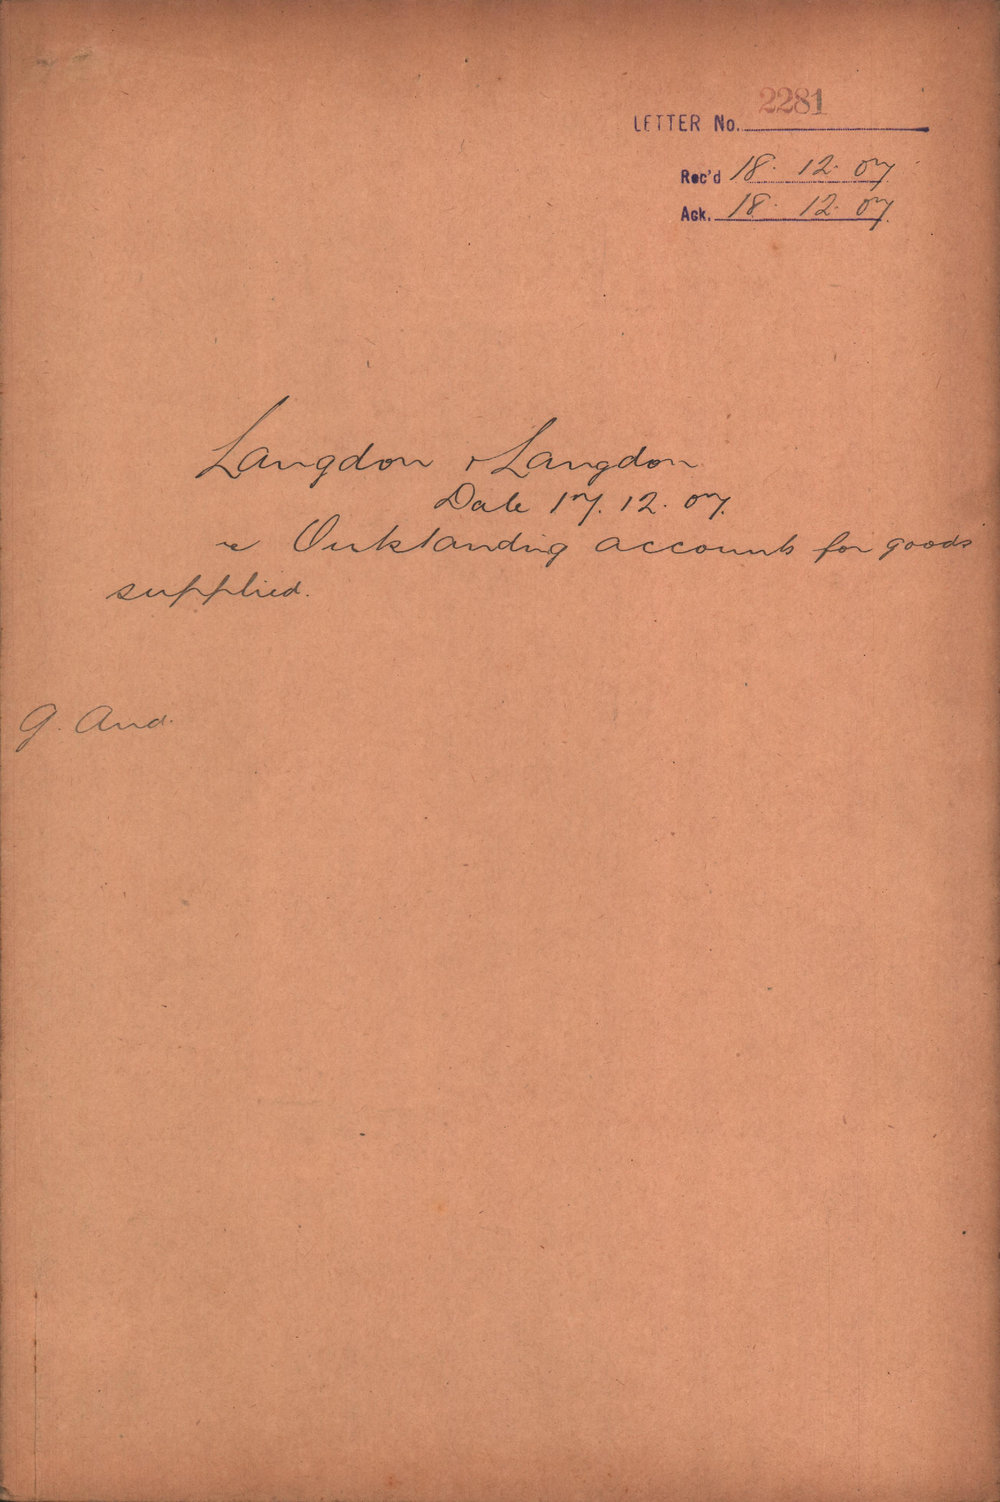 LETTER No. 2281
Rec'd 18. 12. 07
Ack. 18. 12. 07
Langdon & Langdon
Date 17. 12. 07.
re Outstanding accounts for goods
supplied.
G. Aud.